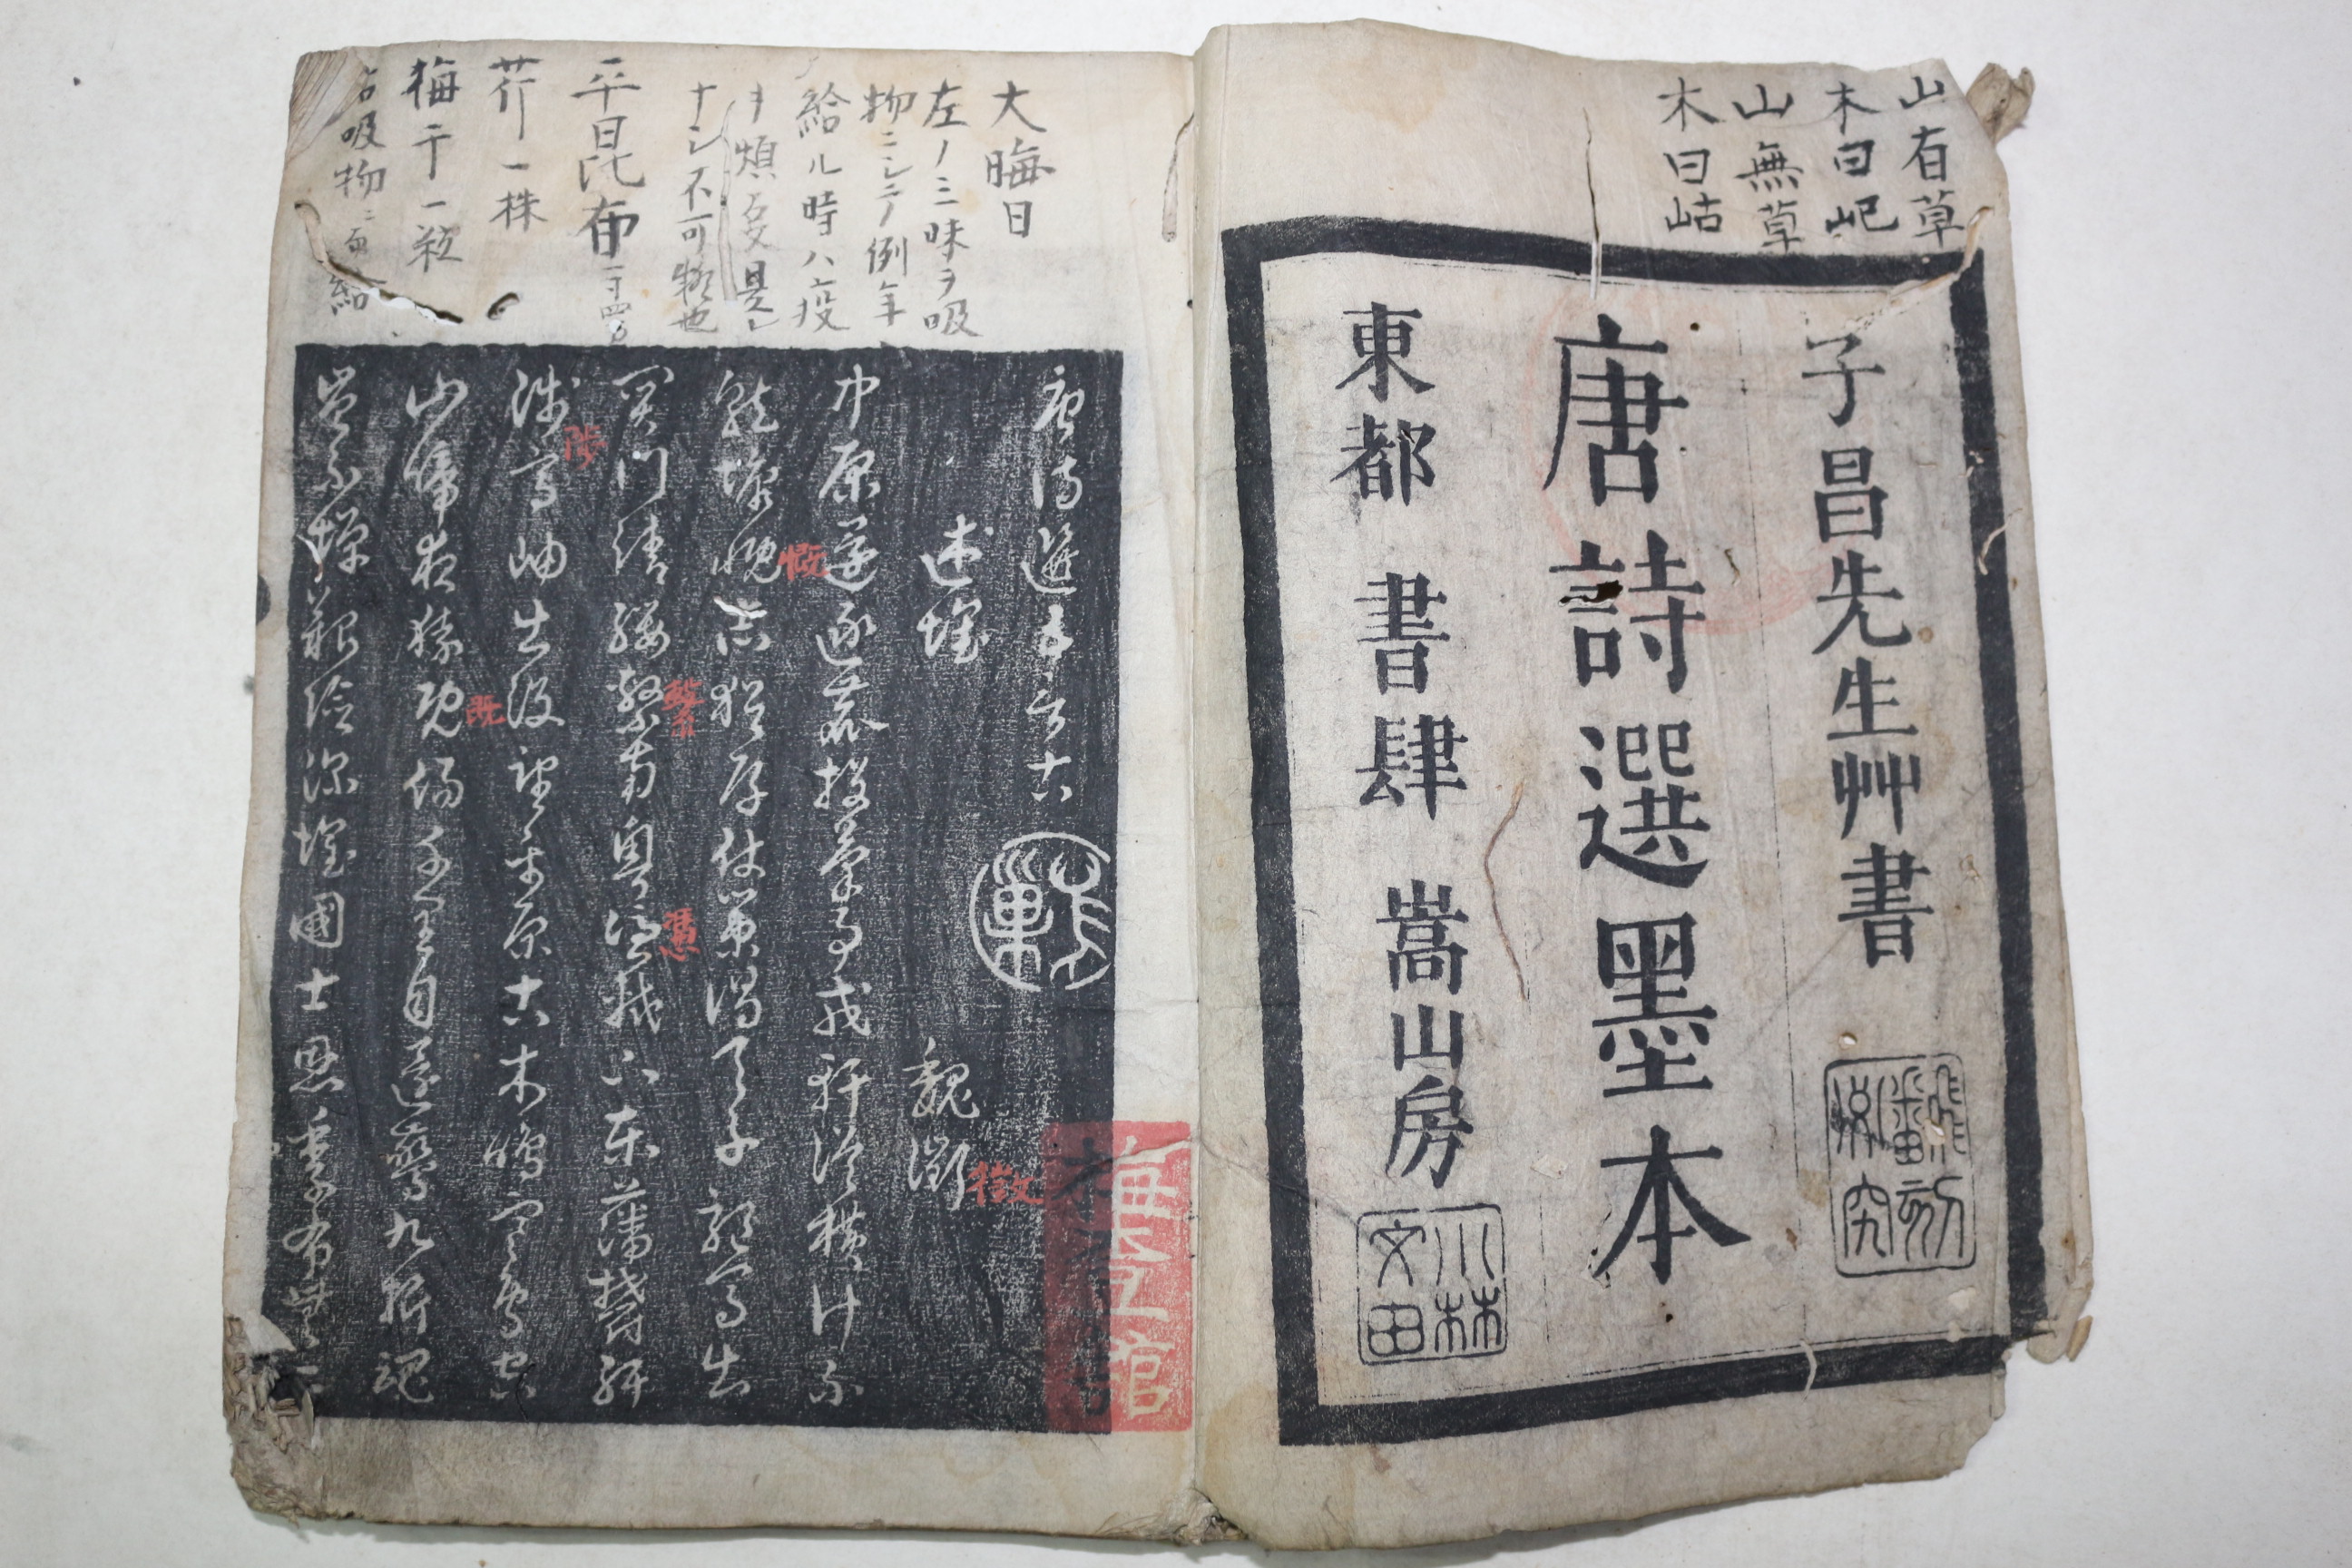 山有草
木曰屺
山無草
木曰岵
子昌先生艸書
唐詩選墨本
東都 書肆 嵩山房
小林
文由
大晦日
左ノ三味ヲ吸
物ニシテ例年
給ル時ハ疫
ヲ煩叓是レ
ナシ不可疑也
平昆布一寸四方
芥一株
梅干一粒
右吸物ニ而給
唐詩選五言古
述懷 魏徵
徵
中原還逐鹿投筆事戎軒縱横計不
慨
就慷慨志猶存杖策謁天子驅馬出
繫
憑
關門請纓繫南粤憑軾下東藩鬱紆
陟
陟高岫出没望平原古木鳴寒鳥空
既
山啼夜猿既傷千里目還驚九折魂
豈不憚艱險深懷國士恩季布無二